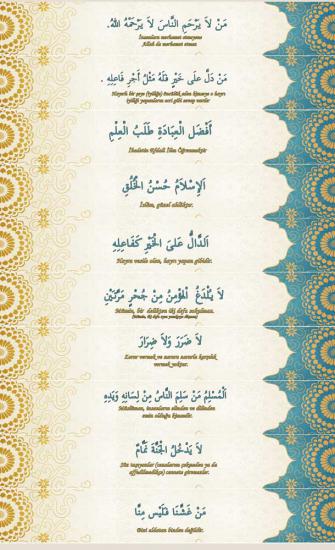 مَنْ لاَ يَرْحَمِ النَّاسَ لاَ يَرْحَمْهُ اللهُ.
İnsanlara merhamet etmeyene
Allah da merhamet etmez
مَنْ دَلَّ عَلَى خَيْرٍ فَلَهُ مِثْلُ أَجْرِ فَاعِلِهِ.
Hayırlı bir şeye (iyiliğe) öncülük eden kimseye o hayrı
iyiliği yapanların ecri gibi sevap vardır
أَفْضَلُ الْعِبَادَةِ طَلَبُ الْعِلْمِ
İbadetin Efdali İlim Öğrenmektir
اَلْإِسْلاَمُ حُسْنُ الْخُلُقِ
İslâm, güzel ahlâktır.
اَلدَّالُّ عَلَىَ الْخَيْرِ كَفَاعِلِهِ
Hayra vesile olan, hayrı yapan gibidir.
لاَ يُلْدَغُ الْمُؤْمِنُ مِنْ جُحْرٍ مَرَّتَيْنِ
Mümin, bir delikten iki defa sokulmaz.
(Mümin, iki defa aynı yanılgıya düşmez)
لاَ ضَرَرَ وَلاَ ضِرَارَ
Zarar vermek ve zarara zararla karşılık
vermek yoktur.
اَلْمُسْلِمُ مَنْ سَلِمَ النَّاسُ مِنْ لِسَانِهِ وَيَدِهِ
Müslüman, insanların elinden ve dilinden
emin olduğu kimsedir.
لاَ يَدْخُلُ الْجَنَّةَ نَمَّامٌ
Söz taşıyanlar (cezalarını çekmeden ya da
affedilmedikçe) cennete giremezler.
مَنْ غَشَّنَا فَلَيْسَ مِنَّا
Bizi aldatan bizden değildir.